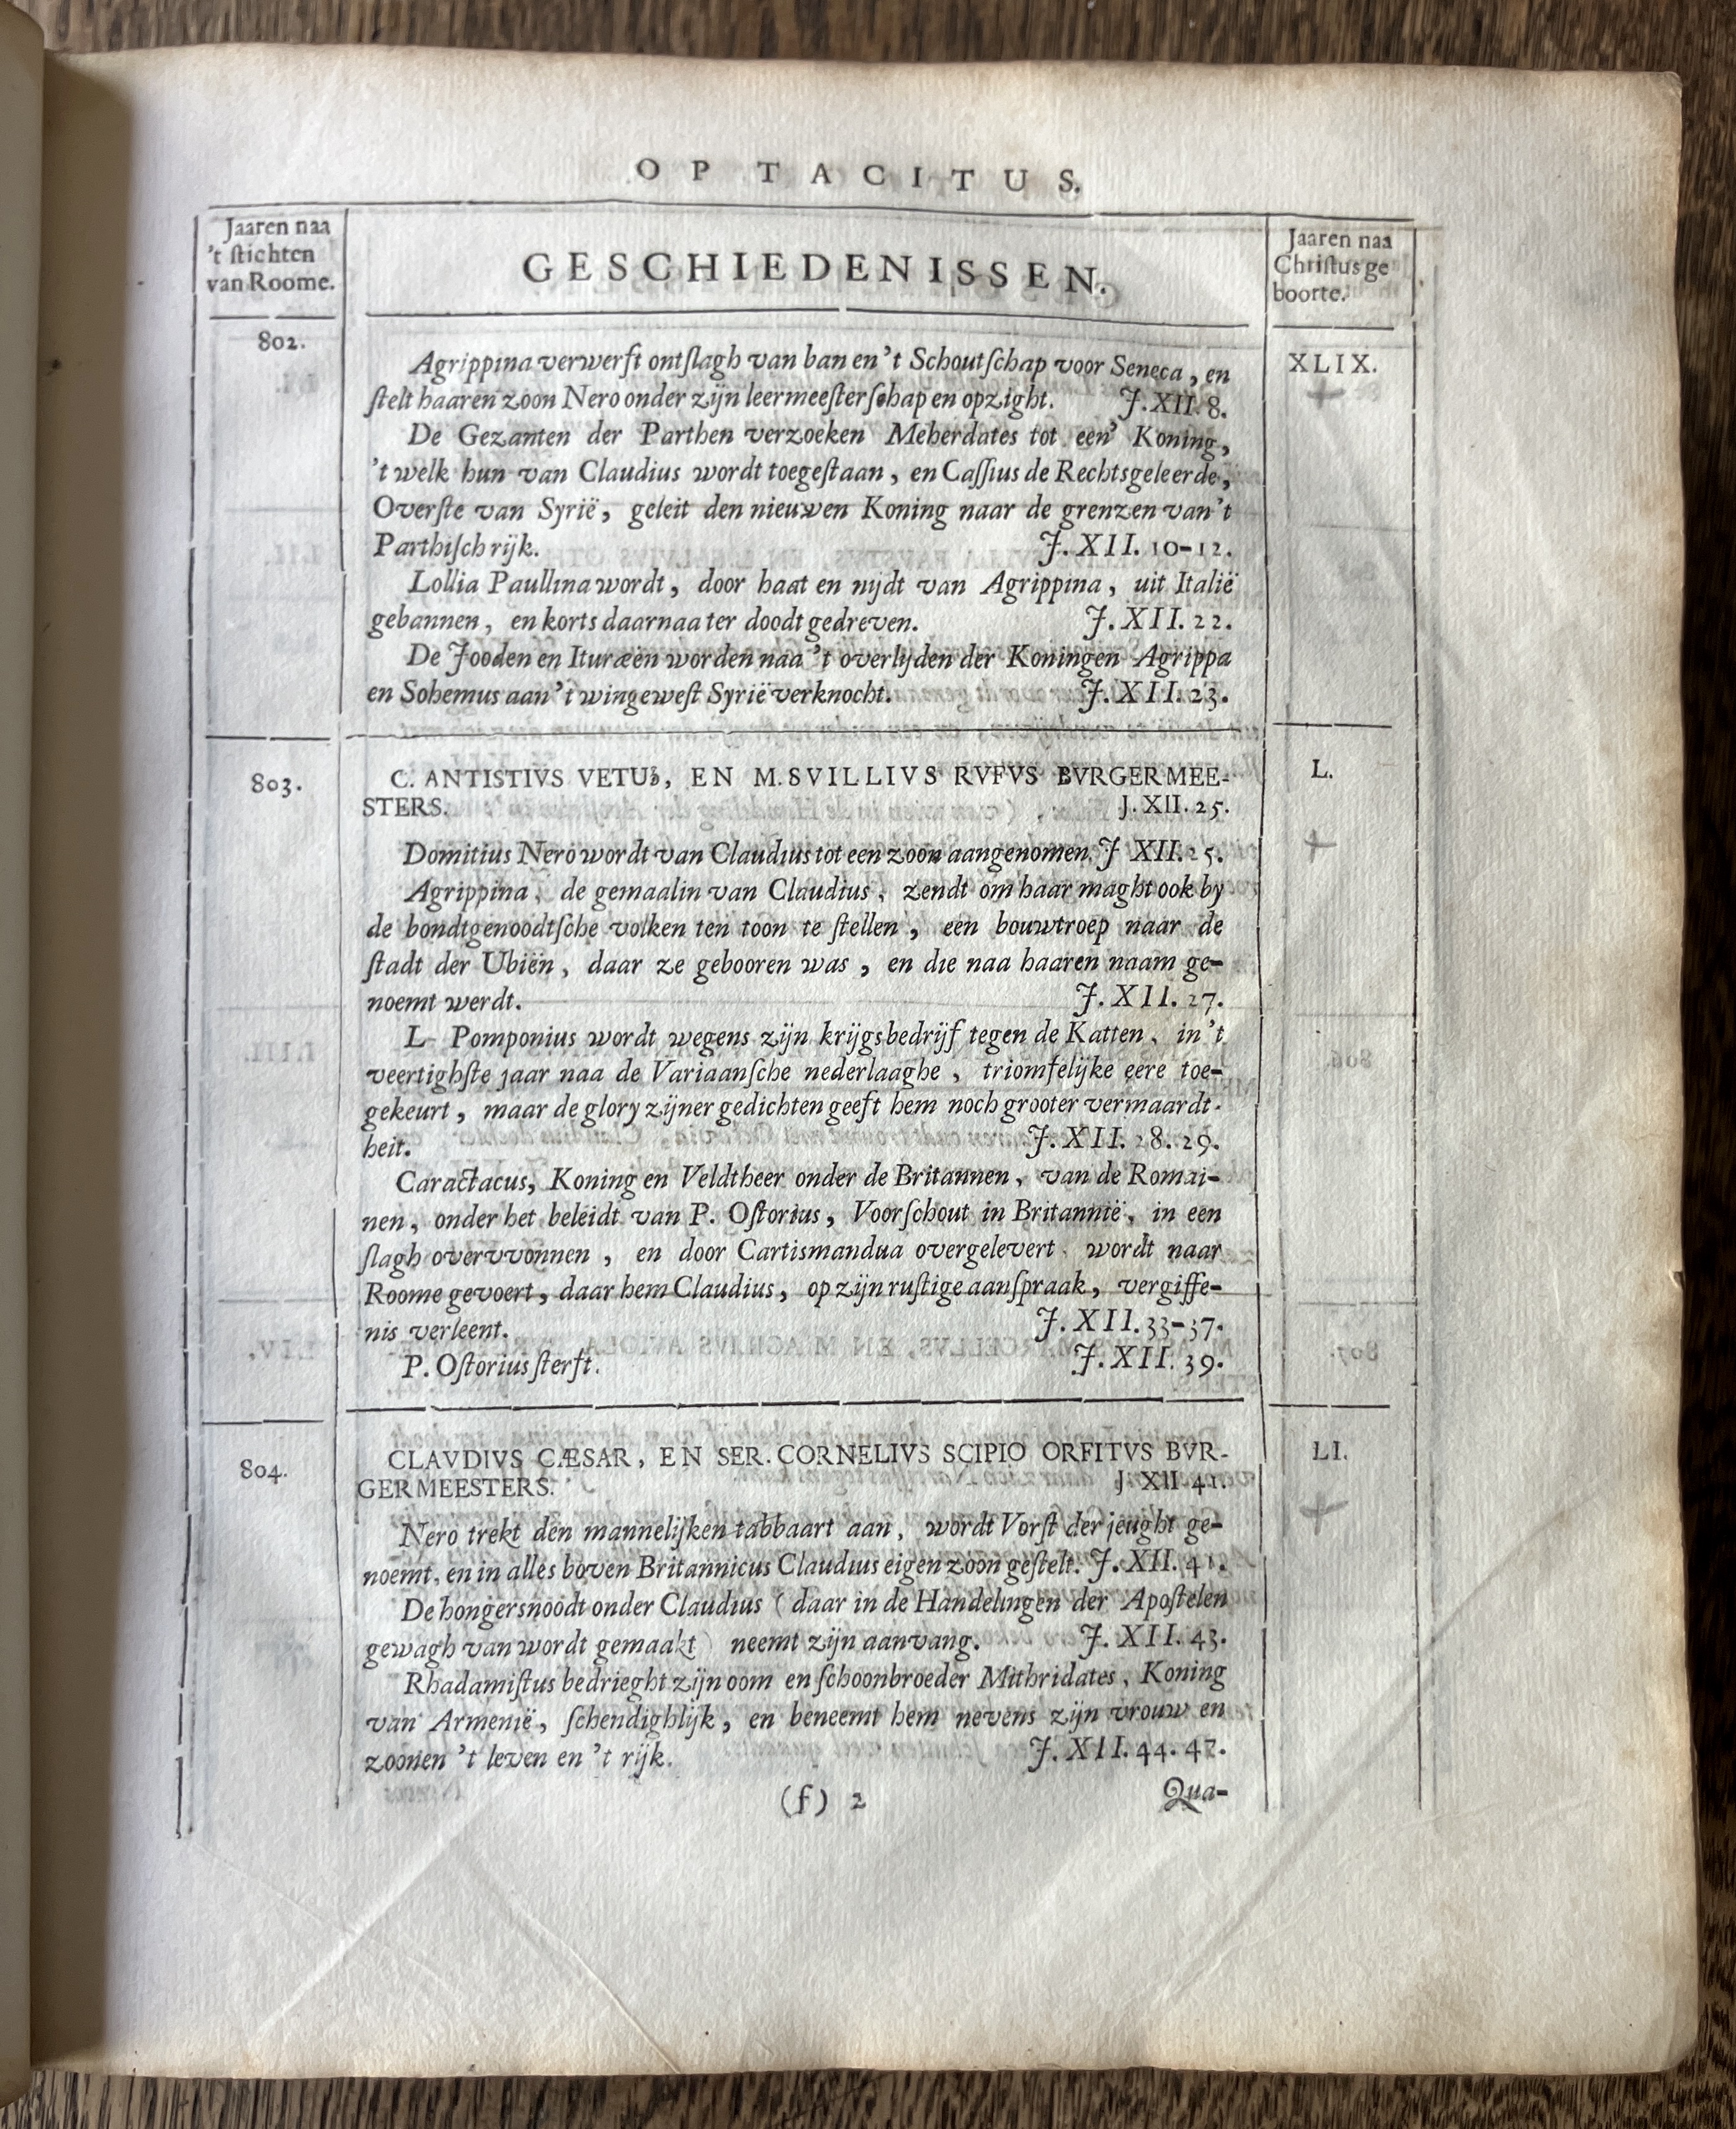 OP TACITUS.
Jaaren naa
't ſtichten
van Roome.
GESCHIEDENISSEN.
Jaaren naa
Chriſtus ge
boorte.
802.
XLIX.
Agrippina verwerft ontſlagh van ban en 't Schoutſchap voor Seneca, en
ſtelt haaren zoon Nero onder zijn leermeeſterſchap en opzight. J. XII. 8.
De Gezanten der Parthen verzoeken Meherdates tot een' Koning,
't welk hun van Claudius wordt toegeſtaan, en Caſſius de Rechtsgeleerde,
Overſte van Syrië, geleit den nieuwen Koning naar de grenzen van 't
Parthiſch rijk. J. XII. 10-12.
Lollia Paullina wordt, door haat en nijdt van Agrippina, uit Italië
gebannen, en korts daarnaa ter doodt gedreven. J. XII. 22.
De Jooden en Ituræen worden naa 't overlijden der Koningen Agrippa
en Sohemus aan 't wingeweſt Syrië verknocht. J. XII. 23.
803.
L.
C. ANTISTIVS VETUS, EN M. SVILLIVS RVFVS BVRGERMEE-
STERS. J. XII. 25.
Domitius Nero wordt van Claudius tot een zoon aangenomen. J XII. 25.
Agrippina, de gemaalin van Claudius, zendt om haar maght ook by
de bondtgenoodtſche volken ten toon te ſtellen, een bouwtroep naar de
ſtadt der Ubiën, daar ze gebooren was, en die naa haaren naam ge-
noemt werdt. J. XII. 27.
L Pomponius wordt wegens zijn krijgsbedrijf tegen de Katten, in 't
veertighſte jaar naa de Variaanſche nederlaaghe, triomfelijke eere toe-
gekeurt, maar de glory zijner gedichten geeft hem noch grooter vermaardt-
heit. J. XII. 28. 29.
Caractacus, Koning en Veldtheer onder de Britannen, van de Romai-
nen, onder het beleidt van P. Oſtorius, Voorſchout in Britannië, in een
ſlagh overvvonnen, en door Cartismandua overgelevert, wordt naar
Roome gevoert, daar hem Claudius, op zijn ruſtige aanſpraak, vergiffe-
nis verleent. J. XII. 33-37.
P. Oſtorius ſterft. J. XII. 39.
804.
LI.
CLAVDIVS CÆSAR, EN SER. CORNELIVS SCIPIO ORFITVS BVR-
GERMEESTERS. J. XII. 41.
Nero trekt den mannelijken tabbaart aan, wordt Vorſt der jeught ge-
noemt, en in alles boven Britannicus Claudius eigen zoon geſtelt. J. XII. 41.
De hongersnoodt onder Claudius (daar in de Handelingen der Apoſtelen
gewagh van wordt gemaakt) neemt zijn aanvang. J. XII. 43.
Rhadamiſtus bedrieght zijn oom en ſchoonbroeder Mithridates, Koning
van Armenië, ſchendighlijk, en beneemt hem nevens zijn vrouw en
zoonen 't leven en 't rijk. J. XII. 44. 47.
(f) 2
Qua-